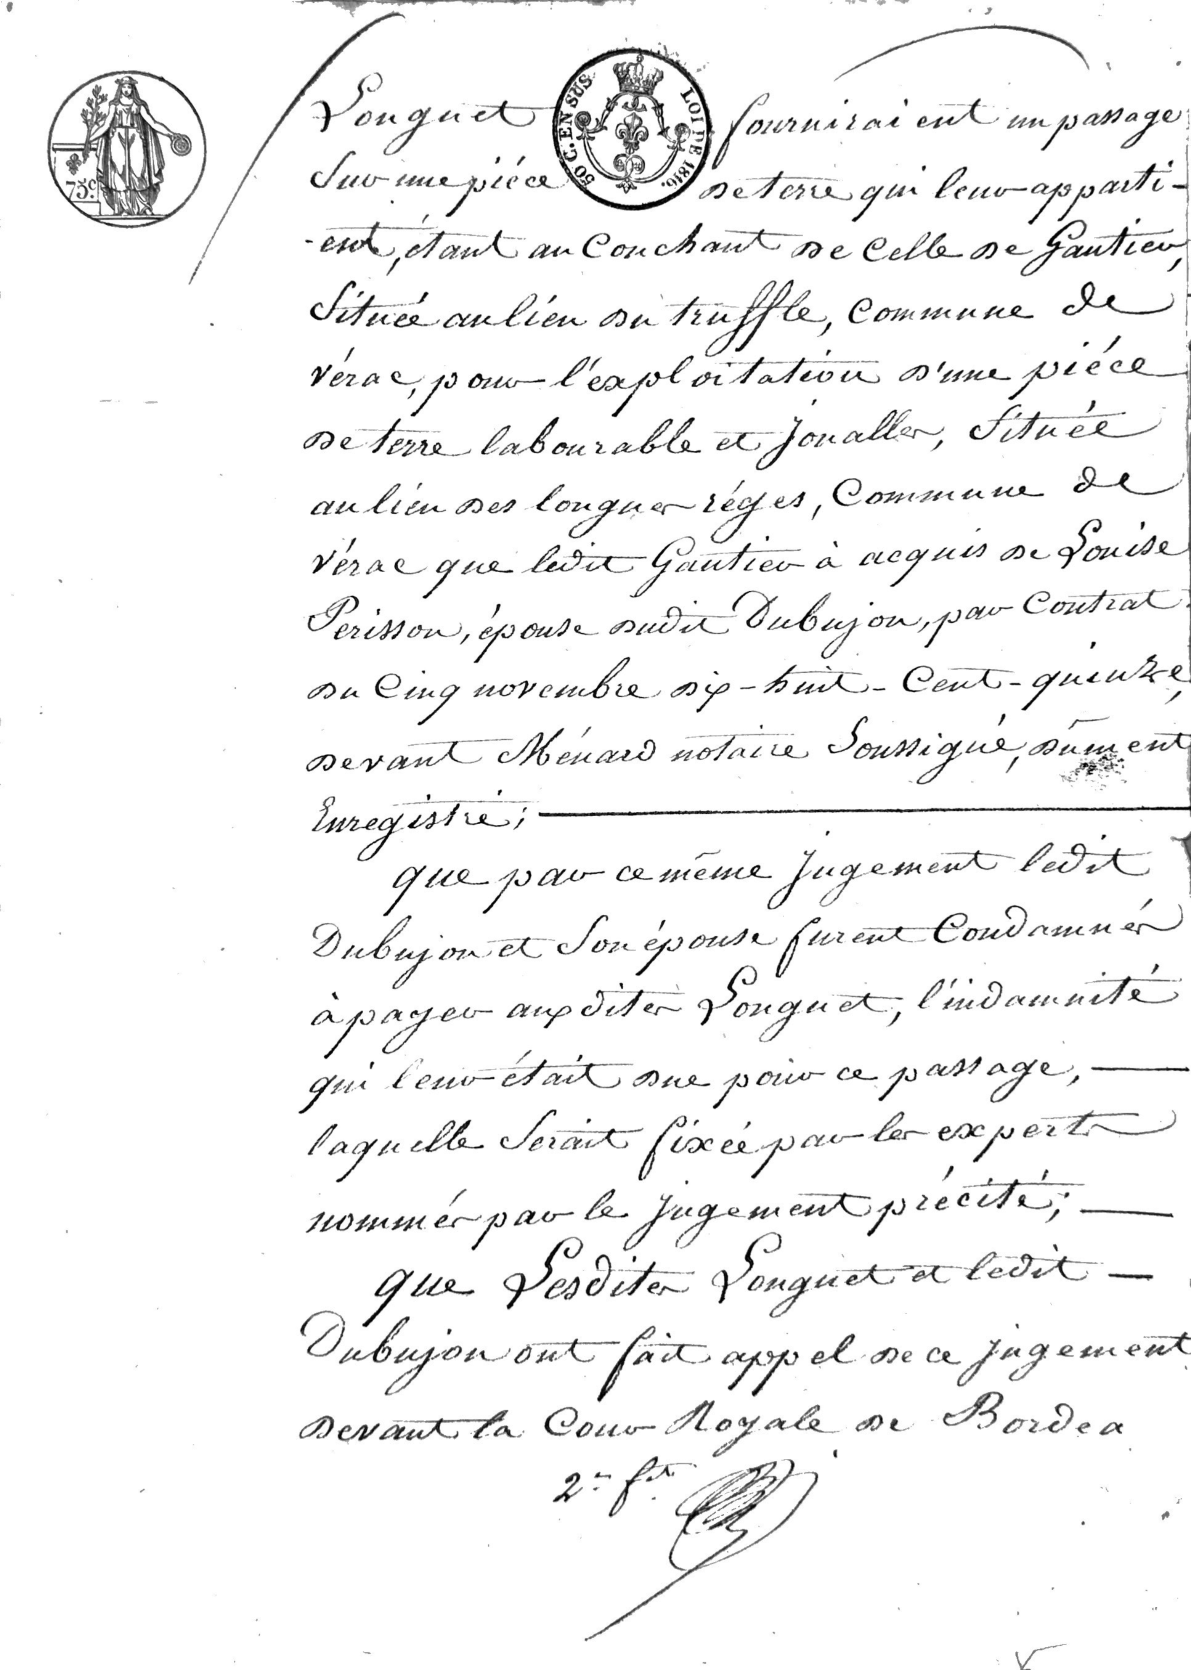 75c.
50 C. EN SUS
LOI DE 1816.
Longuet fourniraient un passage
Sur une piéce de terre qui leur apparti-
-ent, étant au Couchant de Celle de Gautier,
Située au lieu du truffle, Commune de
Vérac, pour l'exploitation d'une piéce
de terre labourable et Joualler, Située
au lieu des longues réges, Commune de
Vérac que ledit Gautier à acquis de Louise
Perisson, épouse dudit Dubujon, par Contrat
du Cinq novembre dix-huit-Cent-quinze,
devant Ménard notaire Soussigné, dûment
Enregistré;
que par ce même Jugement ledit
Dubujon et Son épouse furent Condamnés
à payer auxdites Longuet, l'indamnité
qui leur était due pour ce passage,
laquelle Serait fixée par les experts
nommés par le Jugement précité;
que Lesdites Longuet et ledit
Dubujon ont fait appel de ce Jugement
devant la Cour Royale de Bordea
2e ft